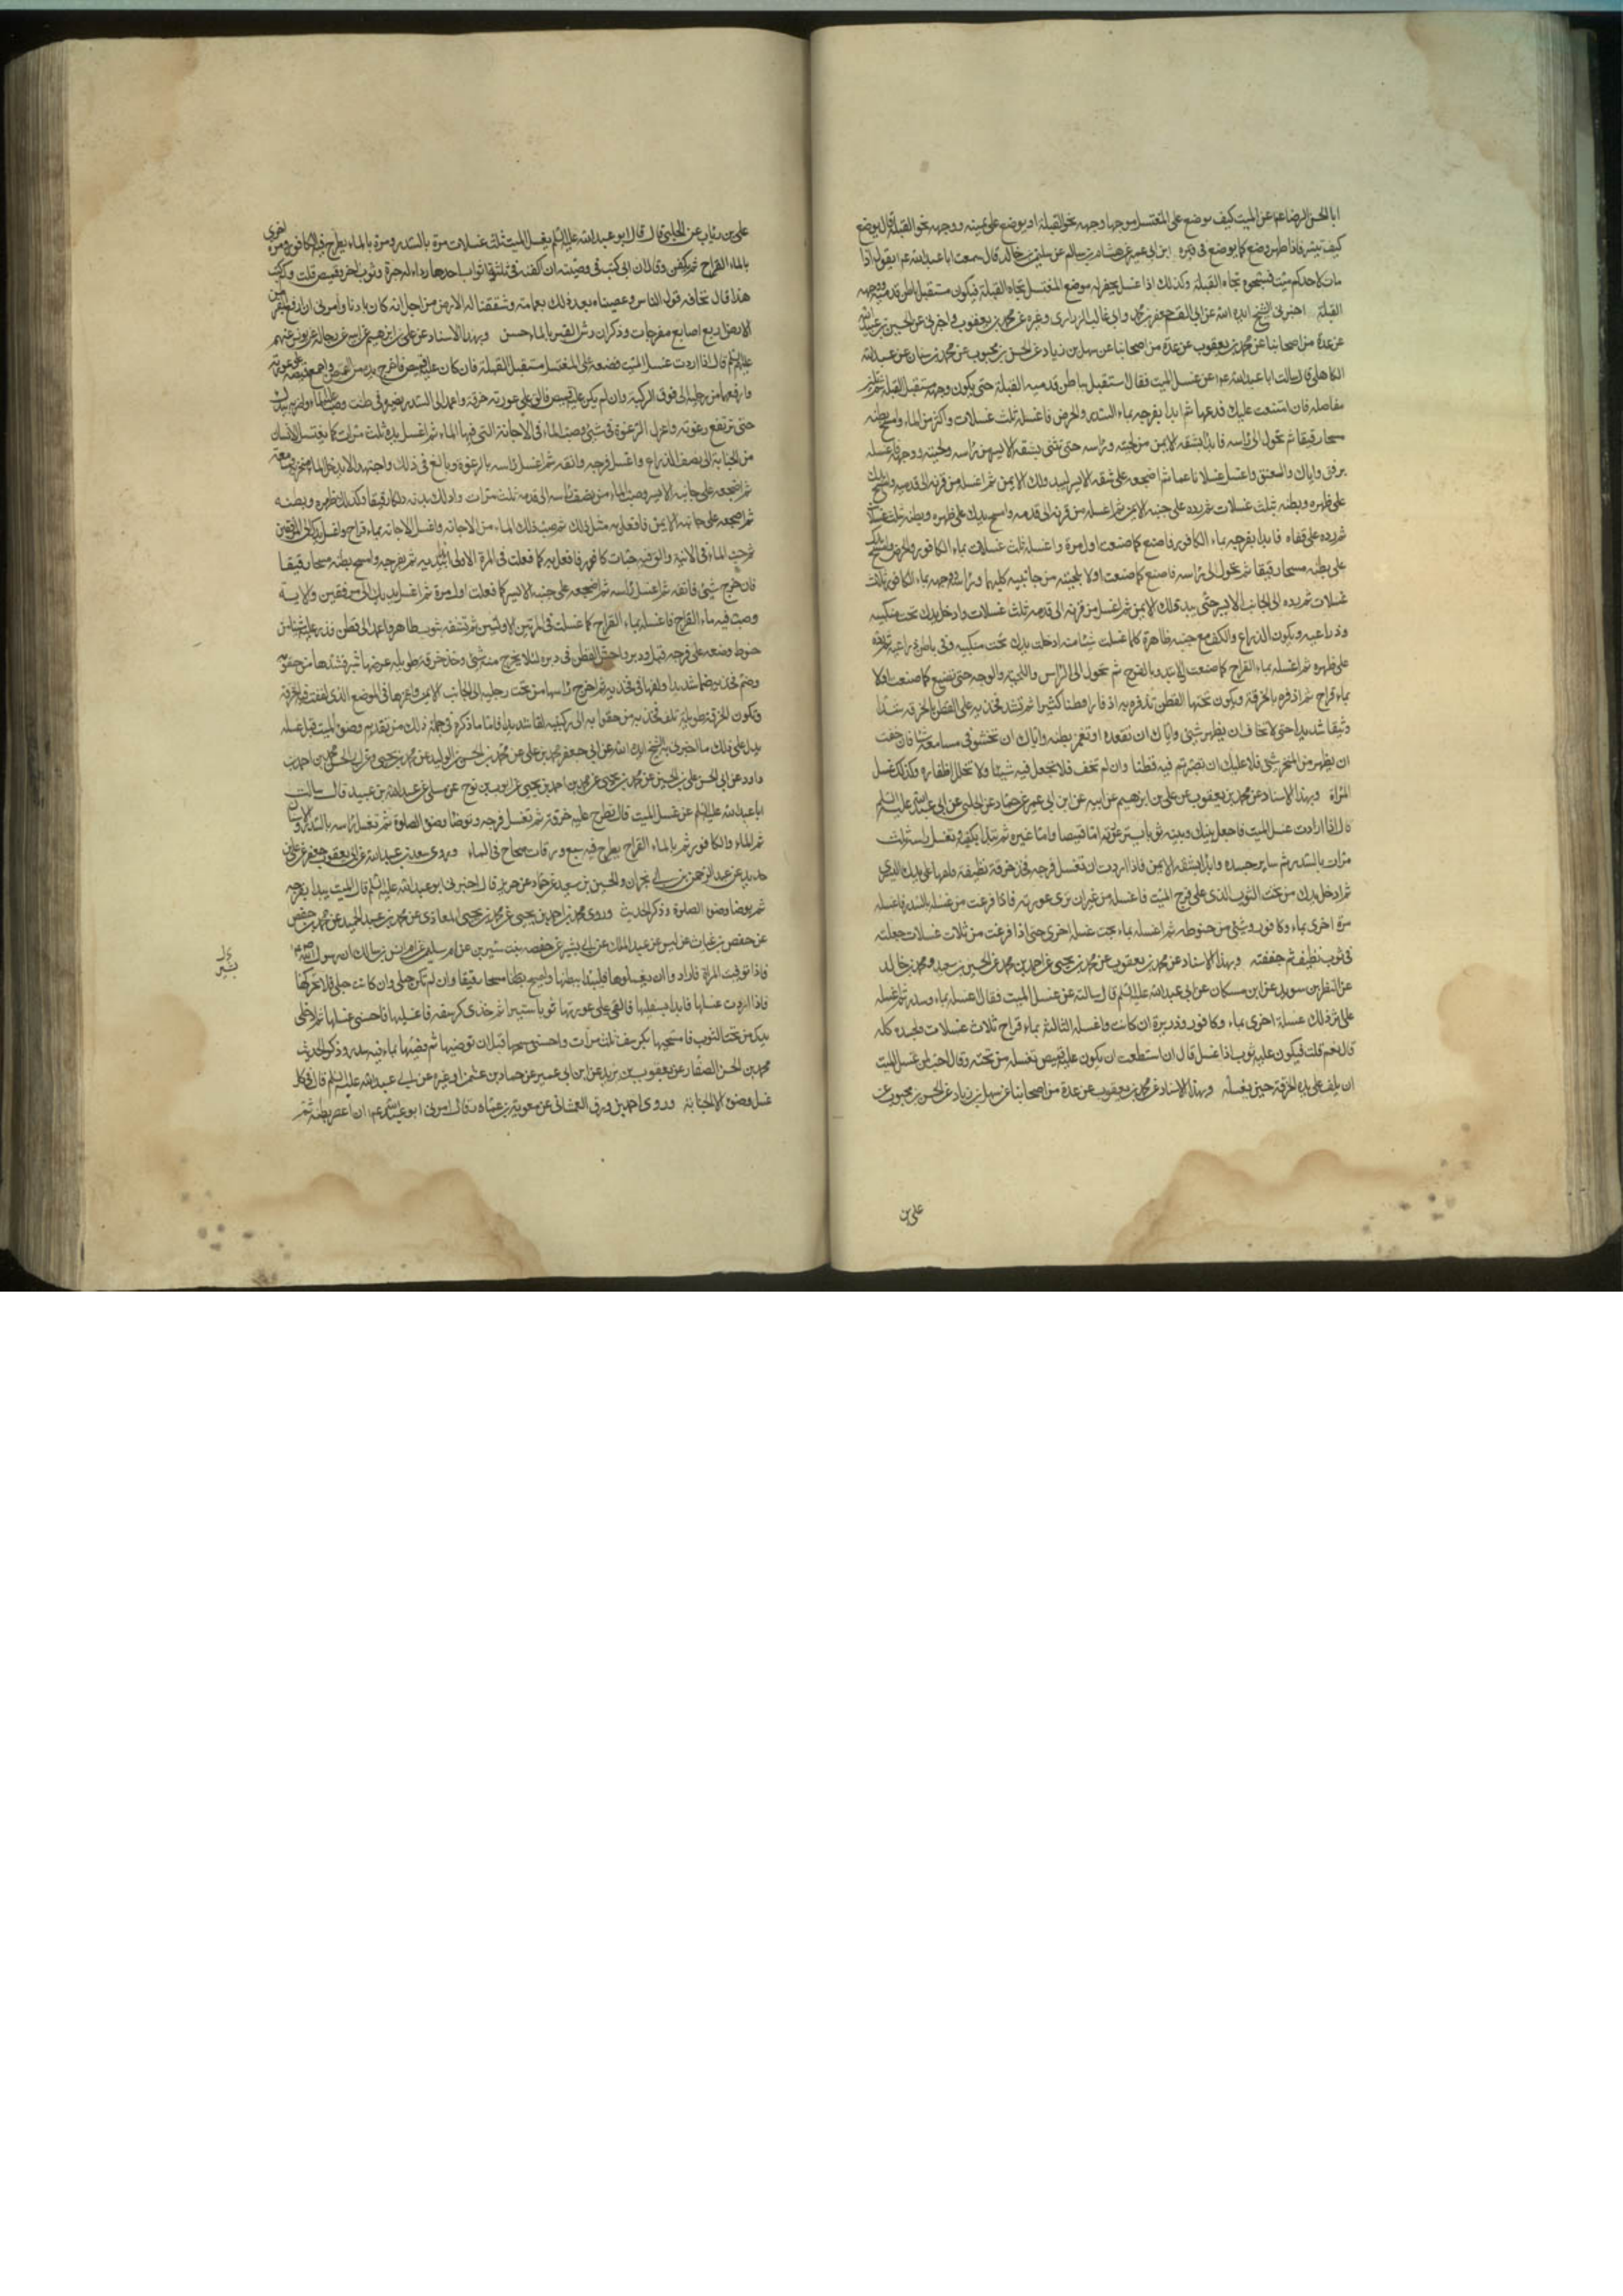 ابا الحسن الرضا عم عن الميت كيف يوضع على المغتسل موجها وجهه نحو القبلة او يوضع على يمينه ووجهه نحو القبلة قال يوضع
كيف تيسر فاذا طهر وضع كما يوضع في قبره ابن ابي عمير عن هشام بن سالم عن سليمن بن خالد قال سمعت ابا عبد الله عم يقول اذا
مات لاحدكم ميت فسجوه تجاه القبلة وكذلك اذا غسل يحفر له موضع المغتسل تجاه القبلة فيكون مستقبل باطن قدميه ووجهه
القبلة اخبرني الشيخ ايده الله عن ابي القسم جعفر بن محمد وابي غالب الزراري وغيره عن محمد بن يعقوب واخبرني عن الحسين بن عبيد الله
عن عدة من اصحابنا عن محمد بن يعقوب عن عدة من اصحابنا عن سهل بن زياد عن الحسن بن محبوب عن محمد بن سنان عن عبد الله
الكاهلي قال سالت ابا عبد الله عم عن غسل الميت فقال استقبل بباطن قدميه القبلة حتى يكون وجهه مستقبل القبلة ثم تلين
مفاصله فان امتنعت عليك فدعها ثم ابدا بفرجه بماء السدر والحرض فاغسله ثلث غسلات واكثر من الماء وامسح بطنه
مسحا رفيقا ثم تحول الى راسه فابدا بشقه الايمن من لحيته وراسه حتى تثنى بشقه الايسر من راسه ولحيته ووجهه فاغسله
برفق واياك والعنق واغسله غسلا ناعما ثم اضجعه على شقه الايسر ليبدو لك الايمن ثم اغسله من قرنه الى قدميه وامسح يدك
على ظهره وبطنه بثلث غسلات ثم رده على جنبه الايمن ثم اغسله من قرنه الى قدمه وامسح يدك على ظهره وبطنه بثلث غسلات
ثم رده على قفاه فابدا بفرجيه بماء الكافور فاصنع كما صنعت اول مرة واغسله ثلث غسلات بماء الكافور والحرض وامسح يدك
على بطنه مسحا رفيقا ثم تحول الى راسه فاصنع كما صنعت اولا بلحيته من جانبيه كليهما وراسه ووجهه بماء الكافور ثلاث
غسلات ثم رده الى الجانب الايسر حتى يبدو لك الايمن ثم اغسله من قرنه الى قدمه ثلث غسلات وادخل يدك تحت منكبيه
وذراعيه ويكون الذراع والكف مع جنبه ظاهرة كلما غسلت شيئا منه ادخلت يدك تحت منكبيه وفي باطن ذراعيه ثم رده
على ظهره ثم اغسله بماء القراح كما صنعت اولا تبدو بالفرج ثم تحول الى الراس واللحية والوجه حتى تصنع كما صنعت اولا
بماء قراح ثم اذفره بالخرقة ويكون تحتها القطن تذفره به اذفارا قطنا كثيرا ثم تشد فخذيه على القطن بالخرقة شدا
وثيقا شديدا حتى لا تخاف ان يظهر شيء واياك ان تقعده او تغمز بطنه واياك ان تحشو في مسامعه شيئا فان خفت
ان يظهر من المنخر شيء فلا عليك ان تصير ثم فيه قطنا وان لم تخف فلا تجعل فيه شيئا ولا تخلل اظفاره وكذلك غسل
المراة وبهذا الاسناد عن محمد بن يعقوب عن علي بن ابرهيم عن ابيه عن ابن ابي عمير عن حماد عن الحلبي عن ابي عبد الله عليه السلم
قال اذا اردت غسل الميت فاجعل بينك وبينه ثوبا يستر عورته اما قميصا واما غيره ثم تبدا بكفيه وتغسل راسه ثلث
مرات بالسدر ثم ساير جسده وابدا بشقه الايمن فاذا اردت ان تغسل فرجه فخذ خرقة نظيفة ولفها على يدك اليسرى
ثم ادخل يدك من تحت الثوب الذي على فرج الميت فاغسله من غير ان ترى عورته فاذا فرغت من غسله بالسدر فاغسله
مرة اخرى بماء وكافور وشيء من حنوطه ثم اغسله بماء بحت غسلة اخرى حتى اذا فرغت من ثلاث غسلات جعلته
في ثوب نظيف ثم جففته وبهذا الاسناد عن محمد بن يعقوب عن محمد بن يحيى عن احمد بن محمد عن الحسين بن سعيد ومحمد بن خالد
عن النضر بن سويد عن ابن مسكان عن ابي عبد الله عليه السلم قال سالته عن غسل الميت فقال اغسله بماء وسدر ثم اغسله
على اثر ذلك غسلة اخرى بماء وكافور وذريرة ان كانت واغسله الثالثة بماء قراح ثلاث غسلات لجسده كله
قال نعم قلت فيكون عليه ثوب اذا غسل قال ان استطعت ان يكون عليه قميص تغسله من تحته وقال احب لمن غسل الميت
ان يلف على يده الخرقة حين يغسله وبهذا الاسناد عن محمد بن يعقوب عن عدة من اصحابنا عن سهل بن زياد عن الحسن بن محبوب عن
علي بن
علي بن رئاب عن الحلبي قال قال ابو عبد الله عليه السلم يغسل الميت ثلث غسلات مرة بالسدر ومرة بالماء يطرح فيه الكافور ومرة اخرى
بالماء القراح ثم يكفن وقال ان ابي كتب في وصيته ان اكفنه في ثلثة اثواب احدها رداء له حبرة وثوب اخر وقميص قلت ولم كتب
هذا قال مخافة قول الناس وعصبناه بعد ذلك بعمامة وشققنا له الارض من اجل انه كان بادنا وامرني ان ارفع القبر من
الارض اربع اصابع مفرجات وذكر ان رش القبر بالماء حسن وبهذا الاسناد عن علي بن ابرهيم عن ابيه عن رجاله عن يونس عنهم
عليهم السلم قال اذا اردت غسل الميت فضعه على المغتسل مستقبل القبلة فان كان عليه قميص فاخرج يده من القميص واجمع قميصه على عورته
وارفعه من رجليه الى فوق الركبة وان لم يكن عليه قميص فالق على عورته خرقة واعمد الى السدر فصيره في طشت وصب عليه الماء واضربه بيدك
حتى ترتفع رغوته واعزل الرغوة في شيء وصب الماء في الاجانة التي فيها الماء ثم اغسل يده ثلث مرات كما يغتسل الانسان
من الجنابة الى نصف الذراع واغسل فرجه وانقه ثم اغسل راسه بالرغوة وبالغ في ذلك واجتهد ان لا يدخل الماء منخريه ومسامعه
ثم اضجعه على جانبه الايسر وصب الماء من نصف راسه الى قدمه ثلث مرات وادلك بدنه دلكا رفيقا وكذلك ظهره وبطنه
ثم اضجعه على جانبه الايمن فافعل به مثل ذلك ثم صب ذلك الماء من الاجانة واغسل الاجانة بماء قراح واغسل يديك الى المرفقين
ثم صب الماء في الانية والق فيه حبات كافور فافعل به كما فعلت في المرة الاولى ابدا بيديه ثم بفرجه وامسح بطنه مسحا رفيقا
فان خرج شيء فانقه ثم اغسل راسه ثم اضجعه على جنبه الايسر كما فعلت اول مرة ثم اغسل يديك الى المرفقين والانية
وصب فيه ماء القراح فاغسله بماء القراح كما غسلت في المرتين الاوليين ثم تنشفه بثوب طاهر واعمد الى قطن فذر عليه شيئا من
حنوط وضعه على فرجه قبل ودبر واحش القطن في دبره لئلا يخرج منه شيء وخذ خرقة طويلة عرضها شبر فشدها من حقويه
وضم فخذيه ضما شديدا ولفها في فخذيه ثم اخرج راسها من تحت رجليه الى الجانب الايمن واغرزها في الموضع الذي لففت فيه الخرقة
وتكون الخرقة طويلة تلف فخذيه من حقويه الى ركبتيه لفا شديدا فاما ما ذكره في جملة ذلك من تقديم وضوء الميت قبل غسله
يدل على ذلك ما اخبرني به الشيخ ايده الله عن ابي جعفر محمد بن علي عن محمد بن الحسن بن الوليد عن محمد بن يحيى وعن ابي الحسن محمد بن احمد بن
داود عن ابي الحسن علي بن الحسين عن محمد بن يحيى عن محمد بن احمد بن يحيى عن ايوب بن نوح عن مسلى عن عبد الله بن عبيد قال سالت
ابا عبد الله عليه السلم عن غسل الميت قال تطرح عليه خرقة ثم تغسل فرجه وتوضأ وضوء الصلوة ثم تغسل راسه بالسدر والاشنان
ثم الماء والكافور ثم بالماء القراح يطرح فيه سبع ورقات صحاح في الماء وروى سعد بن عبد الله عن ابي جعفر عن علي بن
حديد عن عبد الرحمن بن ابي نجران والحسين بن سعيد عن حماد عن حريز قال اخبرني ابو عبد الله عليه السلم قال الميت يبدا بفرجه
ثم يوضا وضوء الصلوة وذكر الحديث وروى محمد بن احمد بن يحيى عن محمد بن يحيى المعاذي عن محمد بن عبد الحميد عن محمد بن حفص
عن حفص بن غياث عن ليث عن عبد الملك عن ابي بشير عن حفصة بنت سيرين عن ام سليم عن ام انس بن مالك ان رسول الله ص قال
فاذا توفيت المراة فاراد وا ان يغسلوها فليبدا ببطنها وليمسح بطنها مسحا رفيقا وان لم تكن حبلى وان كانت حبلى فلا تحركها
فاذا اردت غسلها فابدا بسفليها فالقي على عورتها ثوبا ستيرا ثم خذي كرسفة فاغسليها فاحسني غسلها ثم ادخلي
يدك من تحت الثوب فامسحيها بكرسف ثلث مرات واحسني مسحها قبل ان توضيها ثم وضيها بماء فيه سدر وذكر الحديث
محمد بن الحسن الصفار عن يعقوب بن يزيد عن ابن ابي عمير عن حماد بن عثمن او غيره عن ابي عبد الله عليه السلم قال في كل
غسل وضوء الا الجنابة وروى احمد بن رزق الغمشاني عن معوية بن عمار قال امرني ابو عبد الله عم ان اعصر بطنه ثم